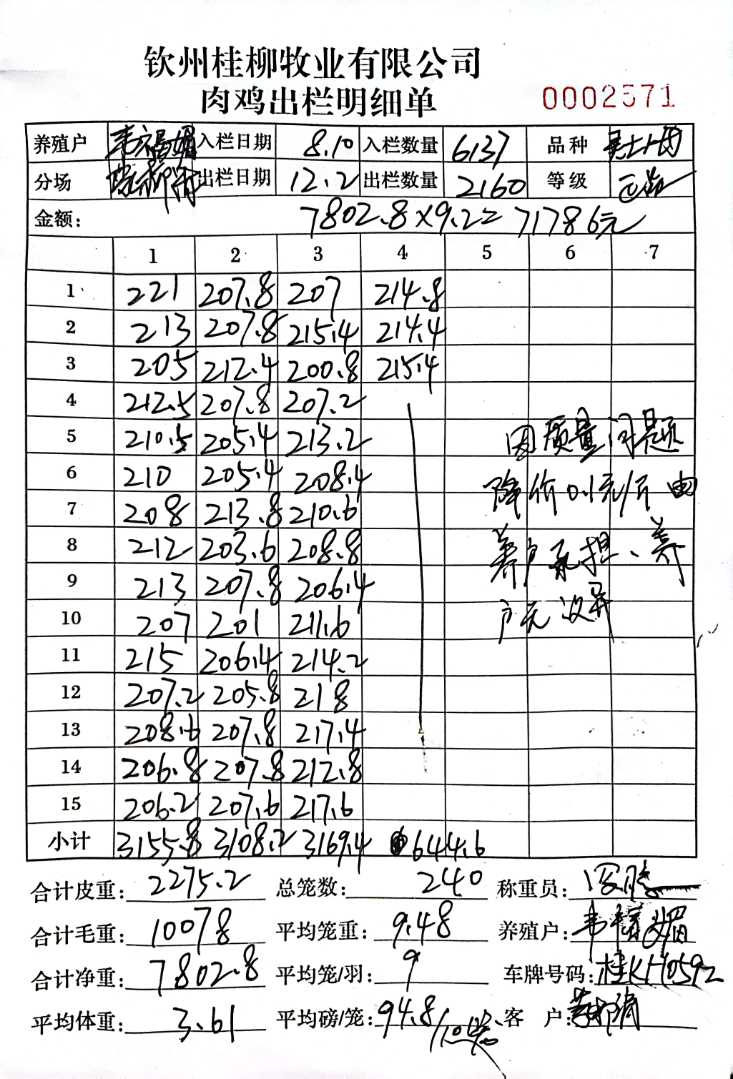 钦州桂柳牧业有限公司
肉鸡出栏明细单 0002571
养殖户 韦福媚 入栏日期 8.10 入栏数量 6137 品种
分场 出栏日期 12.2 出栏数量 2160 等级
金额: 7802.8×9.2= 71786元
1 2 3 4 5 6 7
1 221 207.8 207 214.8
2 213 207.8 215.4 214.4
3 205 212.4 200.8 215.4
4 212.5 207.8 207.2
5 210.5 205.4 213.2 因质量问题
6 210 205.4 208.4 降价0.1元/斤由
7 208 213.8 210.6
8 212 203.6 208.8 养户承担、养
9 213 207.8 206.4 户无议异
10 207 201 211.6
11 215 206.4 214.2
12 207.2 205.8 218
13 208.6 207.8 217.4
14 206.8 207.8 212.8
15 206.2 207.6 217.6
小计 3155.8 3108.2 3169.4 644.6
合计皮重: 2275.2 总笼数: 240 称重员:
合计毛重: 10078 平均笼重: 9.48 养殖户: 韦福媚
合计净重: 7802.8 平均笼/羽: 9 车牌号码: 桂KH0592
平均体重: 3.61 平均磅/笼: 94.8/10笼 客 户: